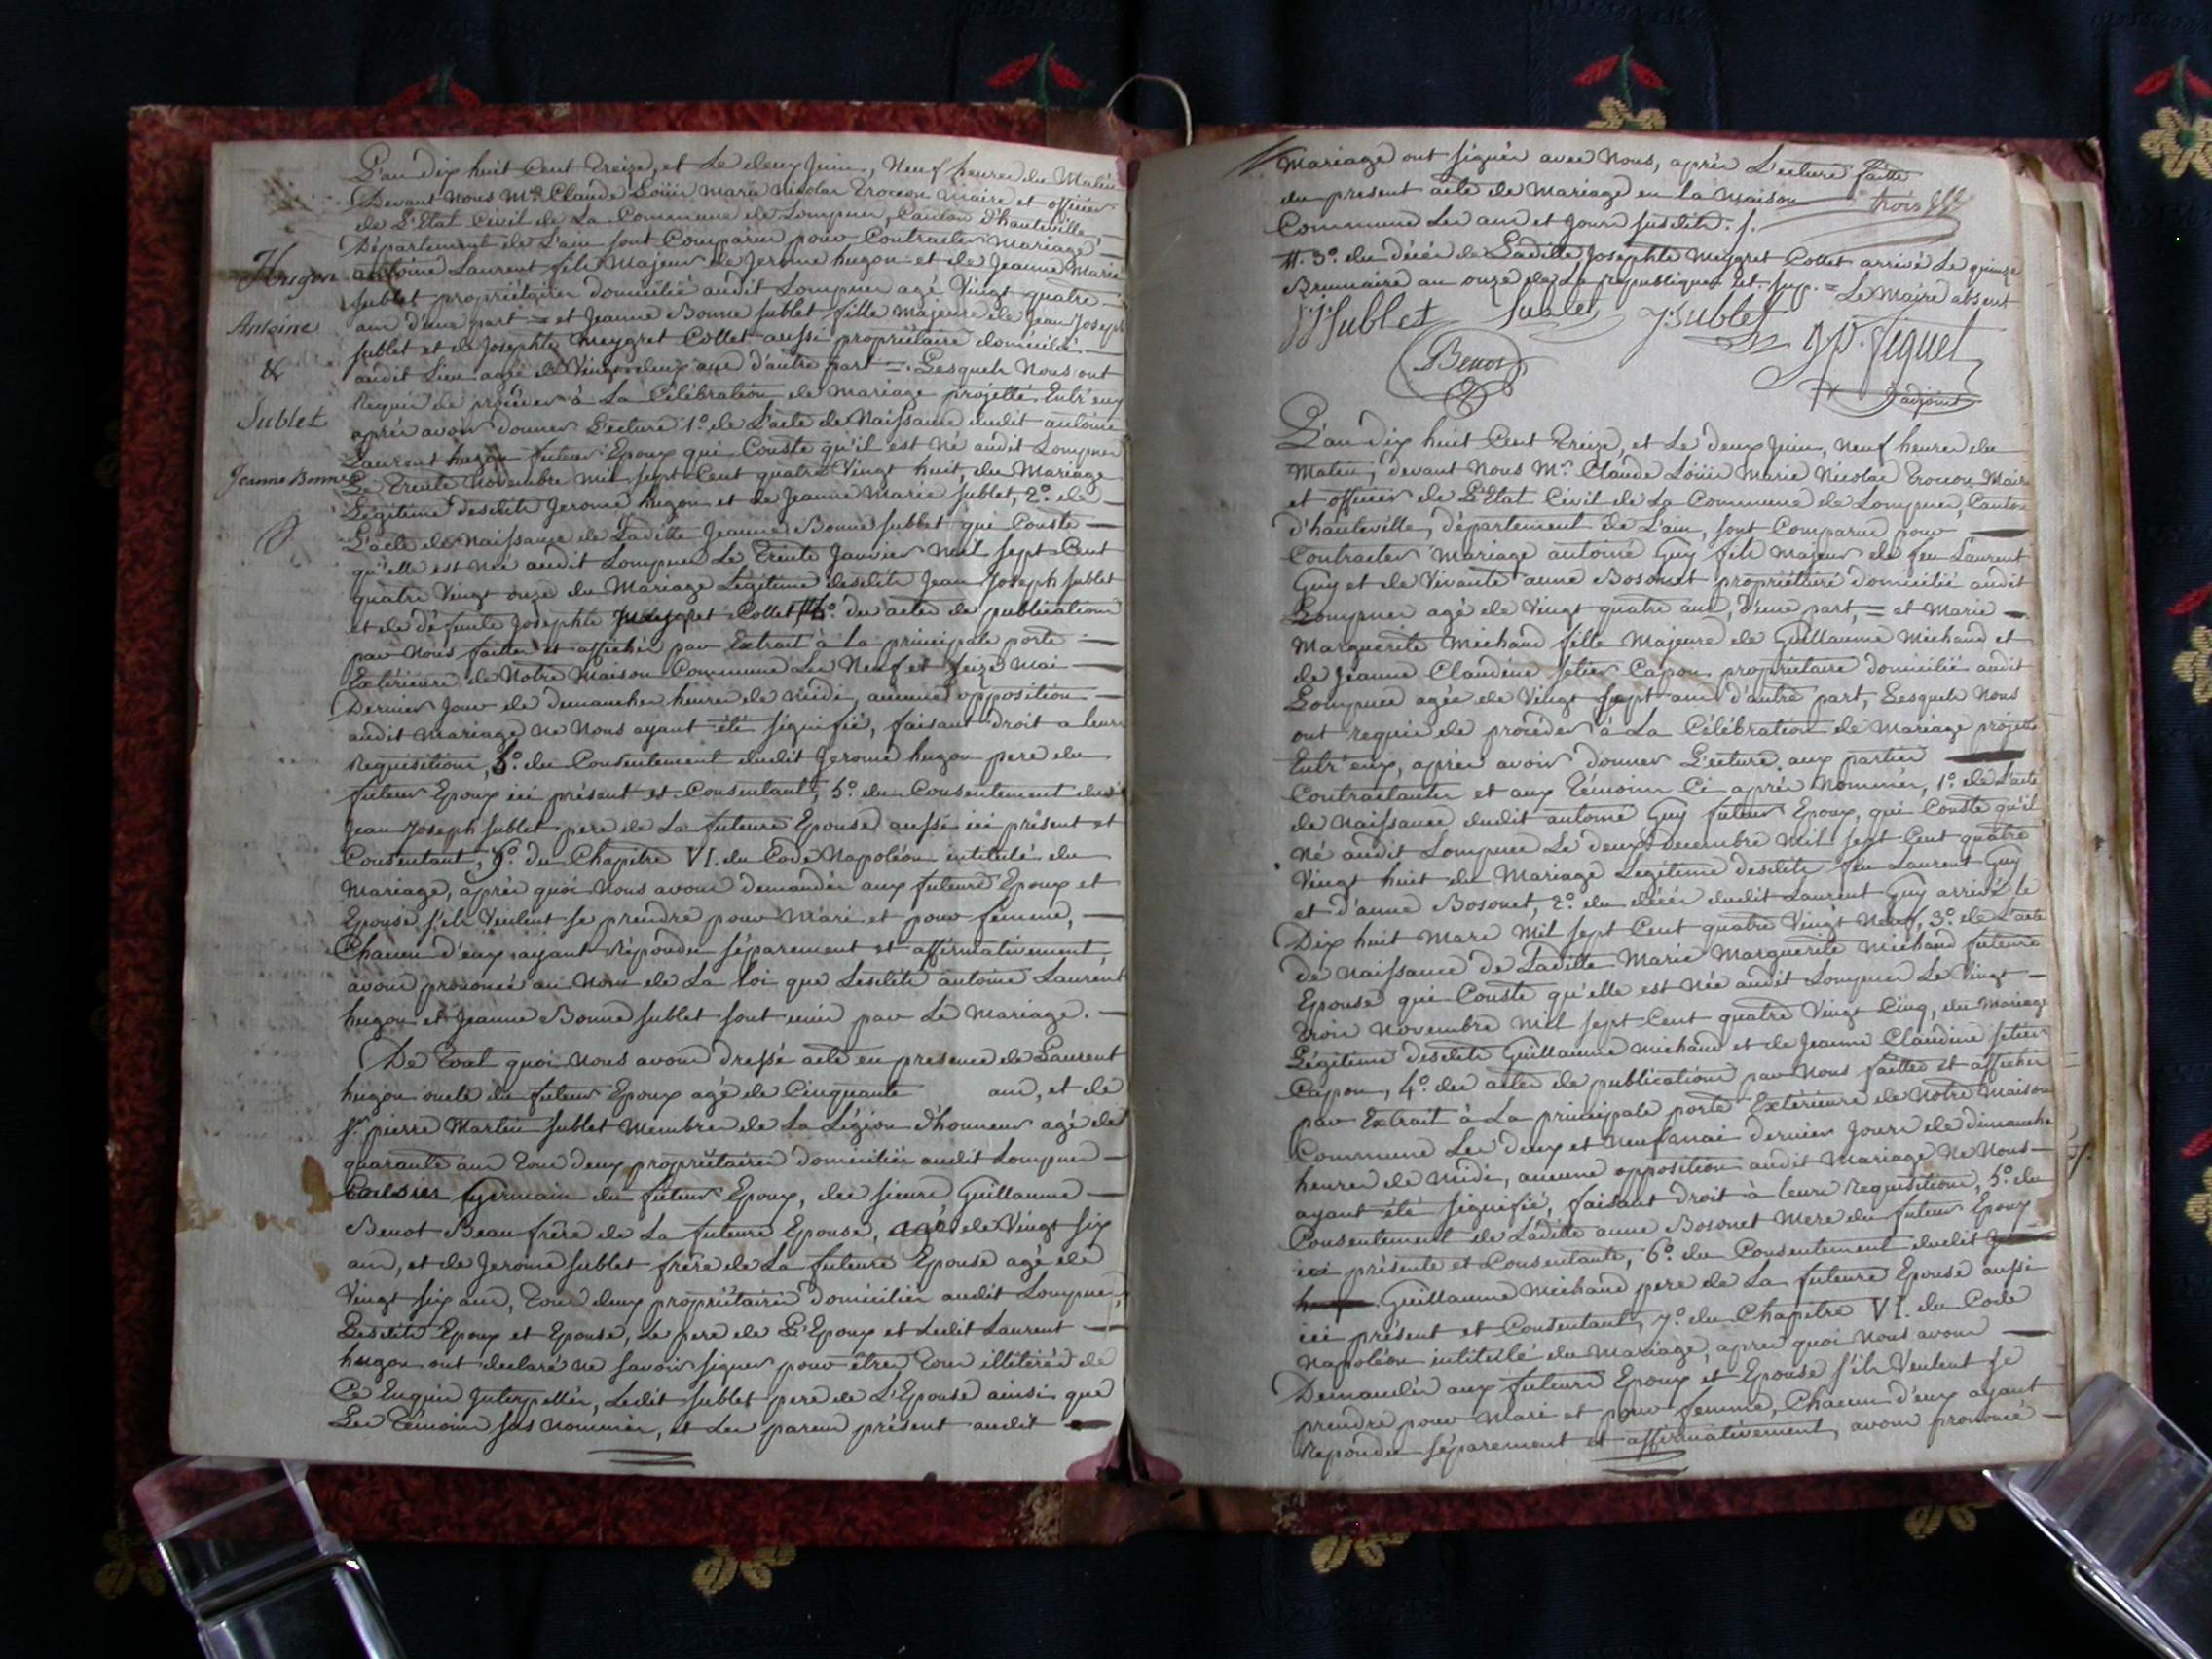 L'an dix huit Cent treize, et Le deux Juin, Neuf heures du Matin
Devant Nous Mre Claude Loüis Marie Nicolas Trocon Maire et officier
de L'Etat Civil de La Commune de Lompnes, Canton d'hauteville,
Département de L'ain sont Comparus pour Contracter Mariage
antoine Laurent fils Majeur de Jerome hugon et de Jeanne Marie
Sublet propriétaires domicilié audit Lompnes agé Vingt quatre
ans d'une part = et Jeanne Bonne Sublet fille Majeure de Jean Joseph
Sublet et de Josephte Meygret Collet aussi propriétaire domiciliée
audit Lieu agée de Vingt deux ans d'autre part =. Lesquels Nous ont
Requis de procéder à La Célébration de Mariage projetté Entr'eux
après avoir donner Lecture 1o. de L'acte de Naissance dudit antoine
Laurent hugon futur Epoux qui Conste qu'il est né audit Lompnes
Le Trente Novembre Mil sept Cent quatre Vingt huit, du Mariage
Légitime desdits Jerome hugon et de Jeanne Marie Sublet, 2o. de
L'acte de Naissance de Ladite Jeanne Bonne Sublet qui Conste
qu'elle est née audit Lompnes Le Trente Janvier Mil sept Cent
quatre Vingt onze du Mariage Légitime desdits Jean Joseph Sublet
et de défunte Josephte Meygret Collet # 4o. des actes de publications
par Nous faittes et affichés par Extrait à la principale porte
Extérieure de Notre Maison Commune Les Neuf et Seize Mai
Dernier Jour de dimanches heures de Midi, aucune opposition
audit Mariage ne Nous ayant été signifié, faisant droit a leurs
Requisitions, 5o. du Consentement dudit Jerome hugon pere du
futur Epoux ici présent et Consentant, 5o. du Consentement dudit
Jean Joseph Sublet pere de La future Epouse aussi ici présent et
Consentant, 6o. du Chapitre VI. du Code Napoléon intitulé du
Mariage, après quoi Nous avons demandés aux futurs Epoux et
Epouse s'ils Veulent se prendre pour Mari et pour femme,
Chacun d'eux ayant Répondu séparement et affirmativement
avons prononcé au Nom de La loi que Lesdits antoine Laurent
hugon et Jeanne Bonne Sublet sont unis par Le Mariage.
De Tout quoi Nous avons dressé acte en presence de Laurent
hugon oncle du futur Epoux agé de Cinquante ans, et de
Sr. pierre Martin Sublet Membre de La Légion d'honneur agé de
quarante ans Tous deux propriétaires domiciliés audit Lompnes
Germain du futur Epoux, des sieurs Guillaume
Benot Beau frère de La future Epouse, agé de Vingt six
ans, et de Jerome Sublet frère de La future Epouse agé de
Vingt six ans, Tous deux propriétaires domiciliés audit Lompnes,
Lesdits Epoux et Epouse, Le pere de L'Epoux et Ledit Laurent
hugon ont declaré ne savoir signer pour être Tous illitérés de
Ce Enquis Interpellés, Ledit Sublet pere de L'Epouse ainsi que
Les Témoins sus nommés, et Les parens présent audit
Hugon
Antoine
&
Sublet
Jeanne Bonne
Mariage ont signés avec Nous, après Lecture faitte
du present acte de Mariage en La Maison
Commune Les an et Jour susdits. /.
trois
#. 3o. du décès de Ladite Josephte Meygret Collet arrivé Le quinze
Brumaire an onze de La République. = Le Maire absent
J. J. Sublet Sublet J. Sublet J. P. Piquet
Benot
adjoint
L'an dix huit Cent Treize, et Le deux Juin, Neuf heures du
Matin, devant Nous Mre Claude Loüis Marie Nicolas Trocon Maire
et officier de L'Etat Civil de La Commune de Lompnes, Canton
d'hauteville, département de L'ain, sont Comparus pour
Contracter Mariage antoine Guy fils Majeur de feu Laurent
Guy et de Vivante anne Bosonet propriétaire domicilié audit
Lompnes agé de Vingt quatre ans, d'une part, = et Marie
Marguerite Michaud fille Majeure de Guillaume Michaud et
de Jeanne Claudine Setier Capon propriétaire domicilié audit
Lompnes agée de Vingt Sept ans d'autre part, Lesquels Nous
ont requis de procéder à La Célébration de Mariage projetté
Entr'eux, après avoir donner Lecture aux parties
Contractantes et aux Témoins Ci après Nommés, 1o. de L'acte
de Naissance dudit antoine Guy futur Epoux, qui Conste qu'il
Né audit Lompnes Le deux decembre Mil sept Cent quatre
Vingt huit du Mariage Légitime desdits feu Laurent Guy
et d'anne Bosonet, 2o. du décès dudit Laurent Guy arrivé le
Dix huit Mars Mil sept Cent quatre Vingt Neuf, 3o. de L'acte
de Naissance de Ladite Marie Marguerite Michaud future
Epouse qui Conste qu'elle est Née audit Lompnes Le Vingt
Trois Novembre Mil sept Cent quatre Vingt Cinq, du Mariage
Légitime desdits Guillaume Michaud et de Jeanne Claudine Setier
Capon, 4o. des actes de publications par Nous faittes et affichés
par Extrait à La principale porte Extérieure de Notre Maison
Commune Les deux et Neuf mai dernier Jours de dimanche
heures de Midi, aucune opposition audit Mariage Ne Nous
ayant été signifié, faisant droit à leurs Requisitions, 5o. du
Consentement de Ladite anne Bosonet Mere du futur Epoux
ici présente et Consentante, 6o. du Consentement dudit
Guillaume Michaud pere de La future Epouse aussi
ici présent et Consentant, 7o. du Chapitre VI. du Code
Napoléon intitulé du Mariage, après quoi Nous avons
Demandés aux futurs Epoux et Epouse s'ils Veulent se
prendre pour Mari et pour femme, Chacun d'eux ayant
Répondu séparement et affirmativement, avons prononcé